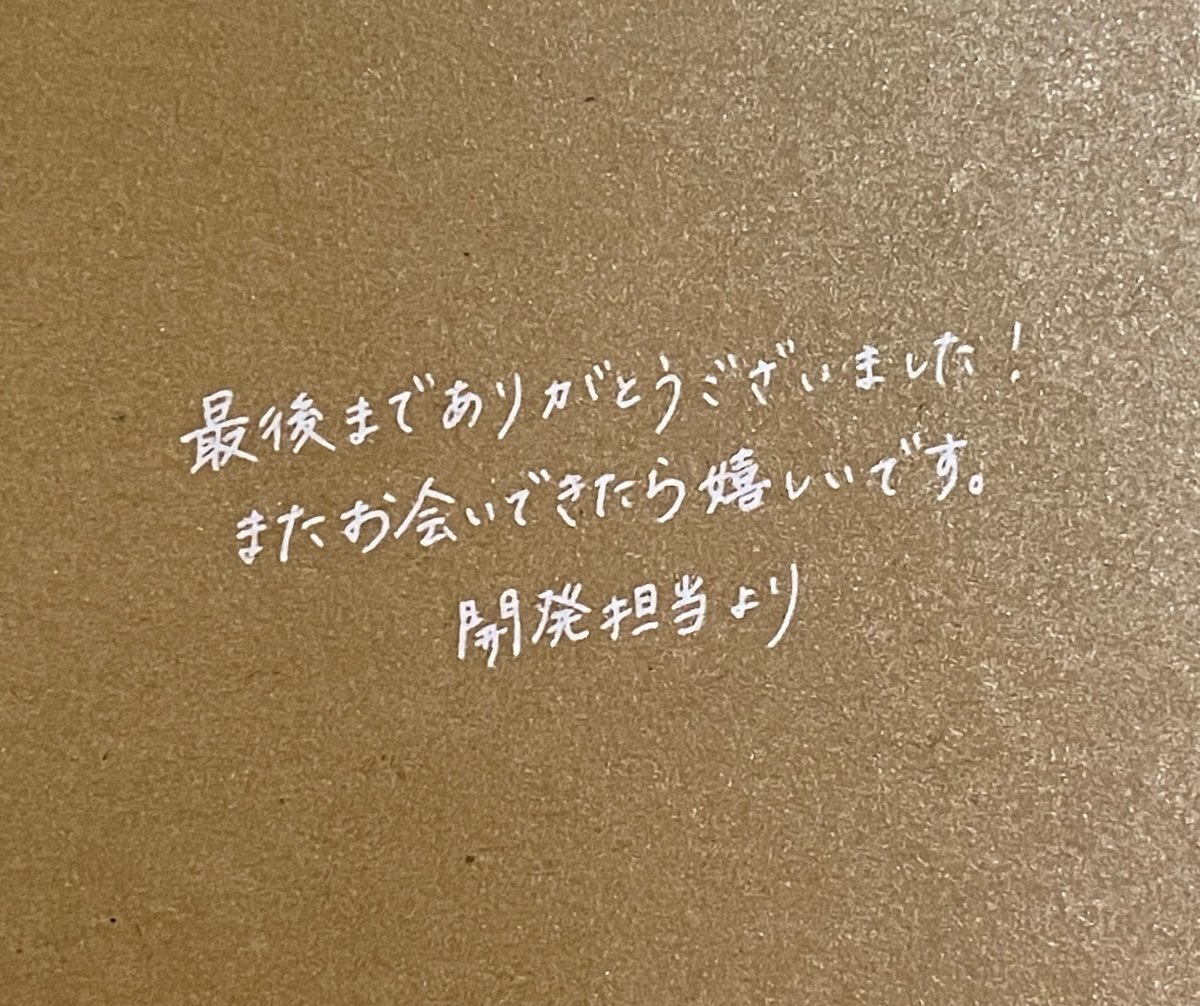 最後までありがとうございました！
またお会いできたら嬉しいです。
開発担当より